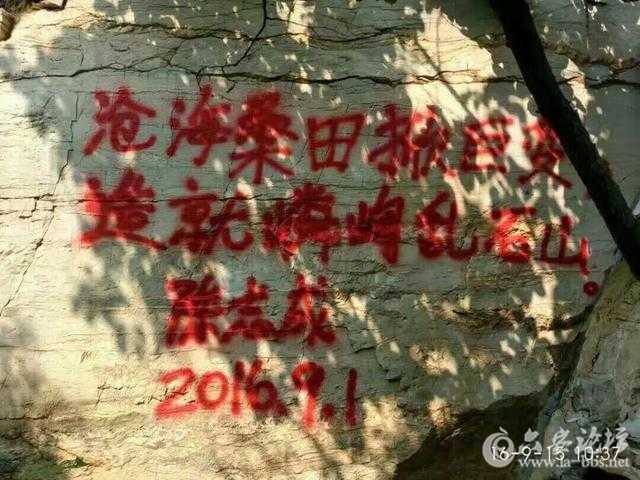 沧海桑田掀巨变，
造就嶙峋乱石山！
陈志成
2016.9.1
六安论坛
16-9-15 10:37
www.la-bbs.net